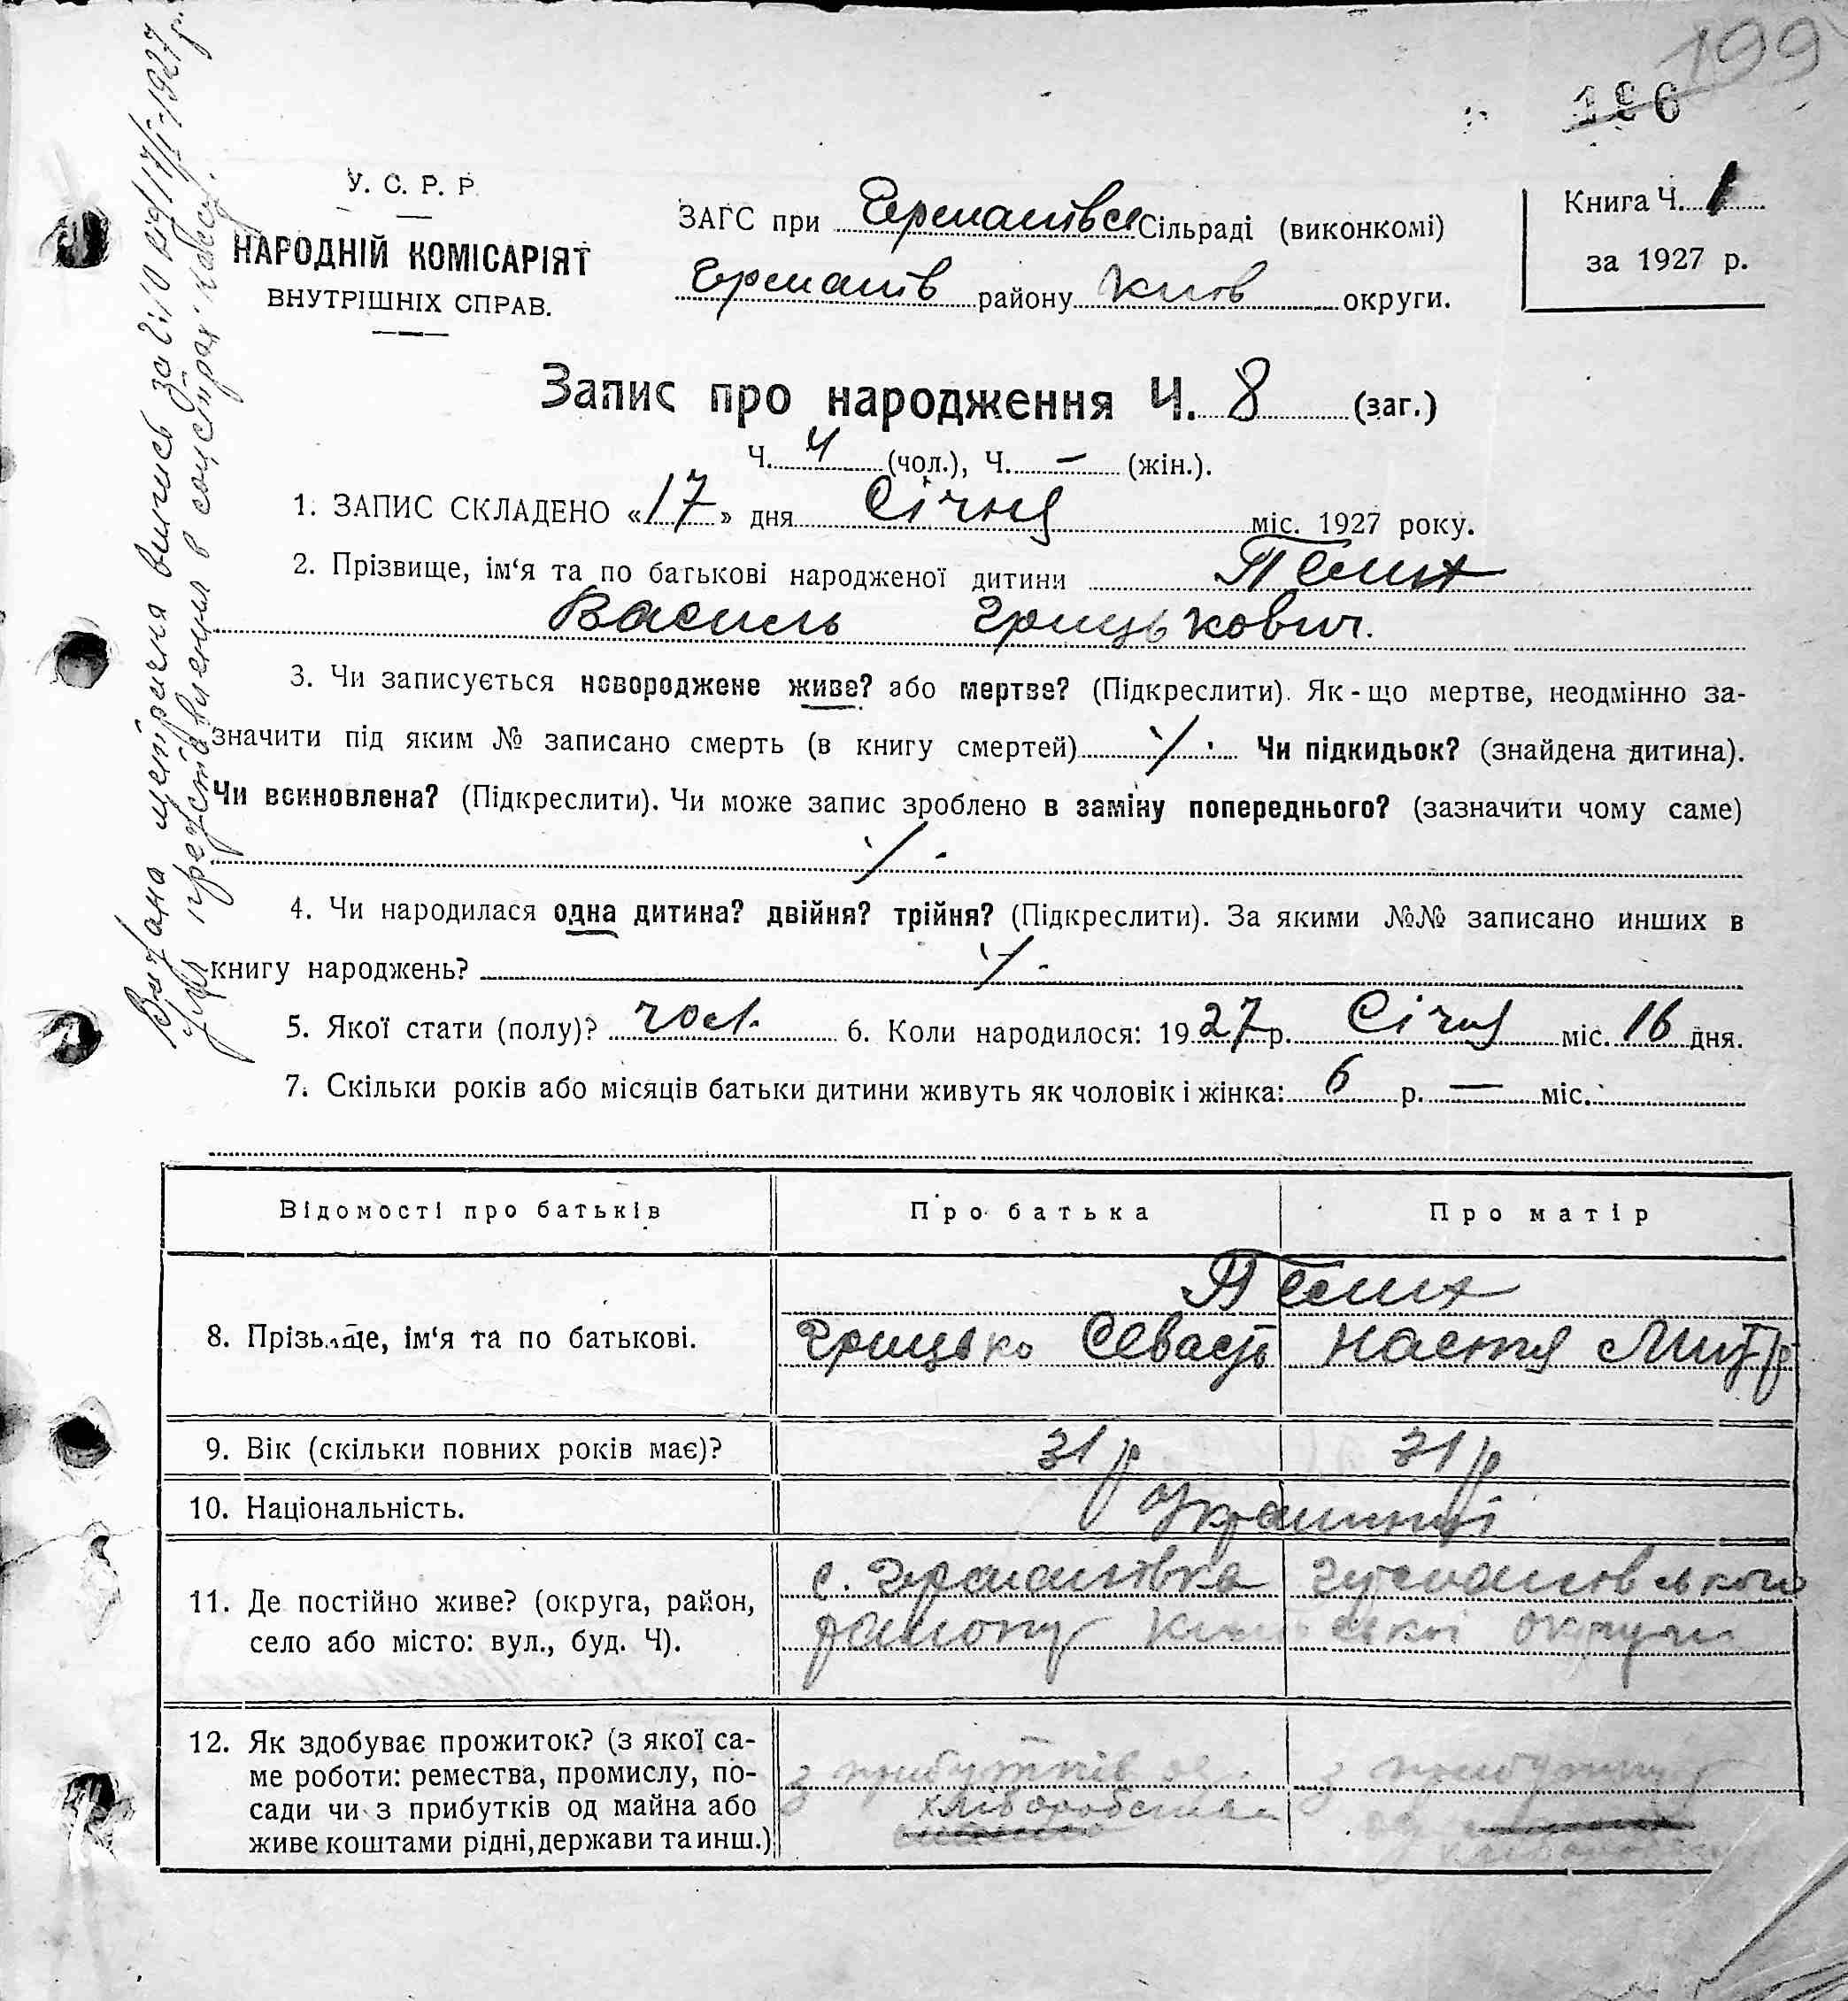 199
196
У. С. Р. Р.
НАРОДНІЙ КОМІСАРІЯТ
ВНУТРІШНІХ СПРАВ.
ЗАГС при Германівс Сільраді (виконкомі)
Германів району Київ округи.
Книга Ч. 1
за 1927 р.
Запис про народження Ч. 8 (заг.)
Ч. 4 (чол.), Ч. — (жін.).
1. ЗАПИС СКЛАДЕНО «17» дня Січня міс. 1927 року.
2. Прізвище, ім‘я та по батькові народженої дитини Пелих
Василь Грицькович.
3. Чи записується новороджене живе? або мертве? (Підкреслити). Як-що мертве, неодмінно за-
значити під яким № записано смерть (в книгу смертей) Чи підкидьок? (знайдена дитина).
Чи всиновлена? (Підкреслити). Чи може запис зроблено в заміну попереднього? (зазначити чому саме)
4. Чи народилася одна дитина? двійня? трійня? (Підкреслити). За якими №№ записано инших в
книгу народжень?
5. Якої стати (полу)? чол. 6. Коли народилося: 1927 р. Січня міс. 16 дня.
7. Скільки років або місяців батьки дитини живуть як чоловік і жінка: 6 р. — міс.
Відомості про батьків Про батька Про матір
Пелих
8. Прізвище, ім‘я та по батькові. Грицько Севаст Настя Митр
9. Вік (скільки повних років має)? 31 р 31 р
10. Національність. Українці
11. Де постійно живе? (округа, район,
село або місто: вул., буд. Ч).
с. Германівка Германівського
району Київської округи
12. Як здобуває прожиток? (з якої са-
ме роботи: ремества, промислу, по-
сади чи з прибутків од майна або
живе коштами рідні, держави та инш.)
з прибутків од хліборобства
з прибутку од
Видана метрична випись за № 10 від 17/I-1927 р.
для представлення в соцстрах касу.